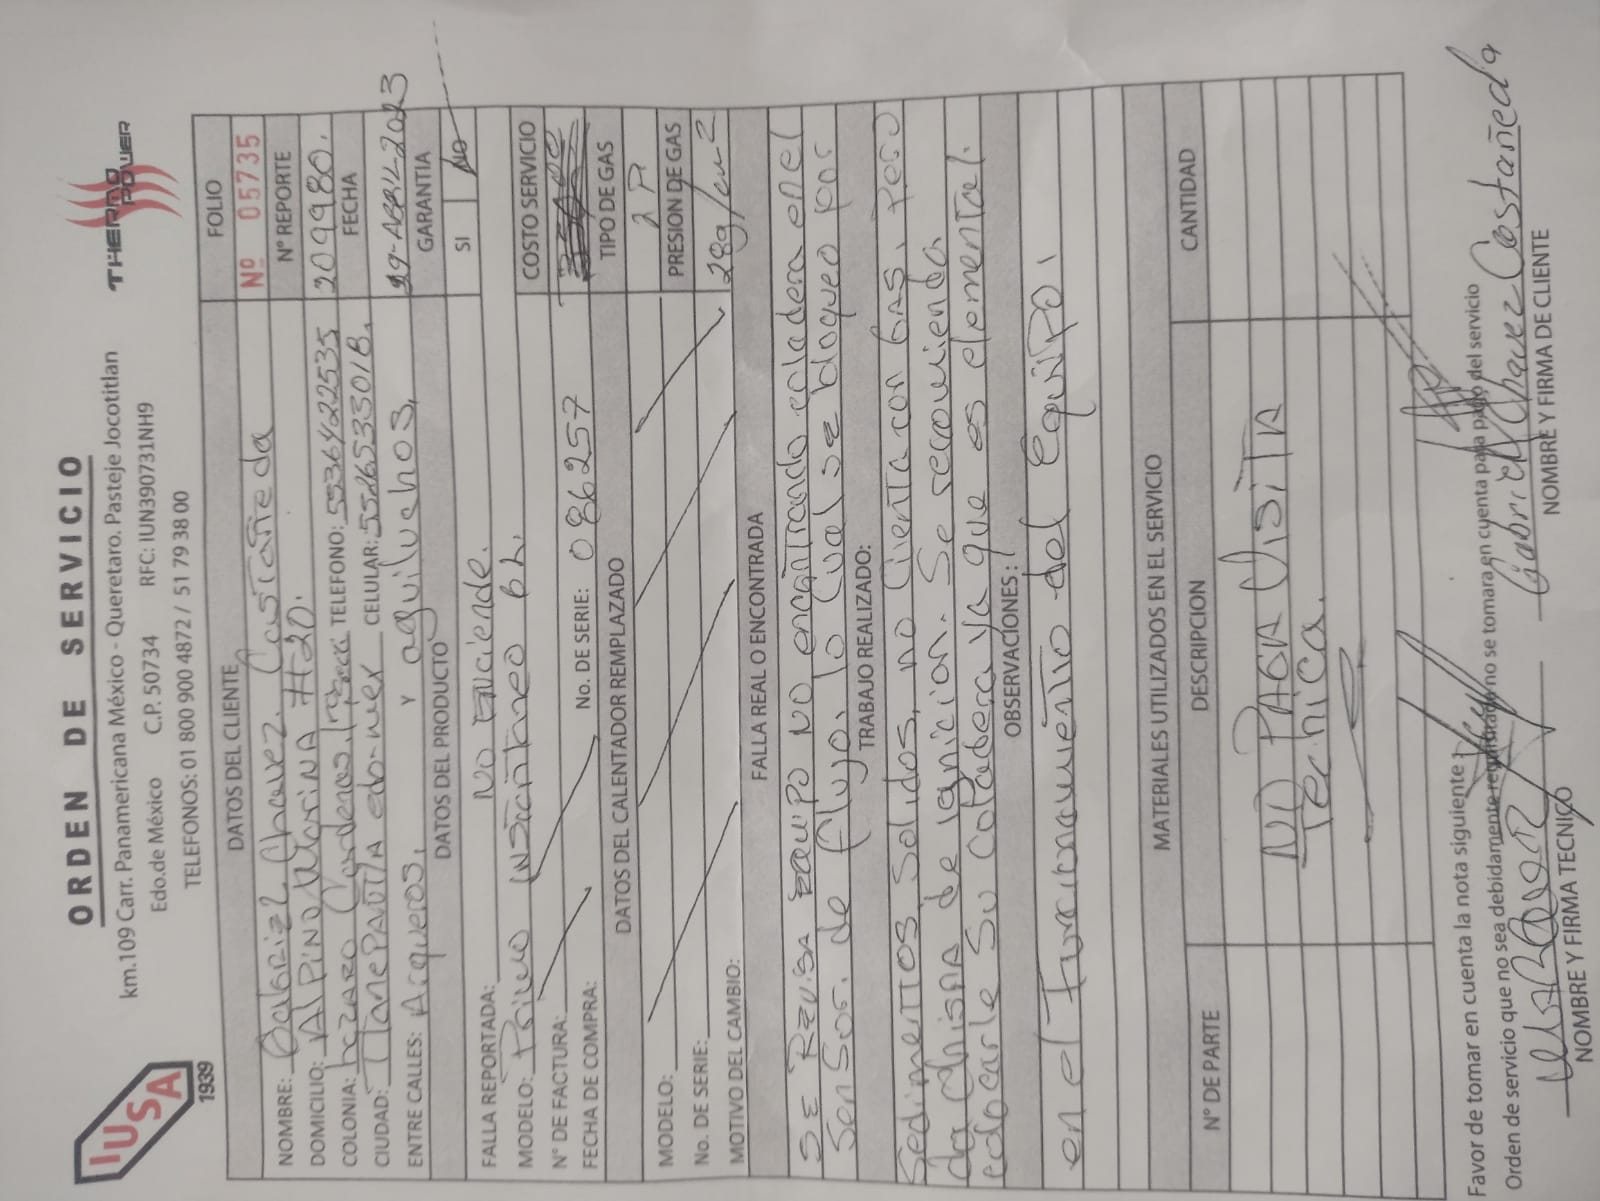 IUSA
1939
ORDEN DE SERVICIO
THERMO POWER
km.109 Carr. Panamericana México - Queretaro. Pasteje Jocotitlan
Edo.de México C.P. 50734 RFC: IUN390731NH9
TELEFONOS: 01 800 900 4872 / 51 79 38 00
DATOS DEL CLIENTE
FOLIO
Nº 05735
NOMBRE: Gabriel Chavez Castañeda
Nº REPORTE
DOMICILIO: Alpino Marina #20.
2099980.
COLONIA: Lazaro Cardenas TELEFONO: 5536422535
FECHA
CIUDAD: TlanePAntla edo-mex CELULAR: 5526533018.
29-ABRIL-2023
ENTRE CALLES: Arqueros, Y aguiluchos,
GARANTIA
DATOS DEL PRODUCTO
SI NO
FALLA REPORTADA: NO Enciende.
MODELO: Primo INStantaneo 6L.
COSTO SERVICIO
Nº DE FACTURA: No. DE SERIE: 086257
FECHA DE COMPRA:
TIPO DE GAS
DATOS DEL CALENTADOR REMPLAZADO
MODELO:
PRESION DE GAS
No. DE SERIE:
28g/cm2
MOTIVO DEL CAMBIO:
FALLA REAL O ENCONTRADA
SE REViSA EQUIPO NO encontrando coladera en el
Sensor. de flujo, lo cual se bloqueo por
TRABAJO REALIZADO:
Sedimentos Solidos, no Cuenta con GAS, Pero
da ChiSPA de ignicion. Se recomienda
colocarle Su coladera ya que es elemental.
OBSERVACIONES:
en el funcionamiento del Equipo.
MATERIALES UTILIZADOS EN EL SERVICIO
Nº DE PARTE DESCRIPCION CANTIDAD
NO PAGA VISITA
Technica.
Favor de tomar en cuenta la nota siguiente
Orden de servicio que no sea debidamente requisitado no se tomara en cuenta para pago del servicio
Gabriel Chavez Castañeda
NOMBRE Y FIRMA TECNICO
NOMBRE Y FIRMA DE CLIENTE